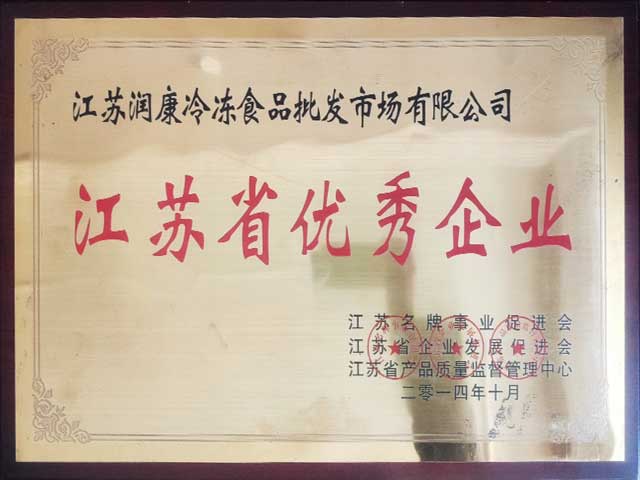 江苏润康冷冻食品批发市场有限公司
江苏省优秀企业
江苏名牌事业促进会
江苏省企业发展促进会
江苏省产品质量监督管理中心
二零一四年十月